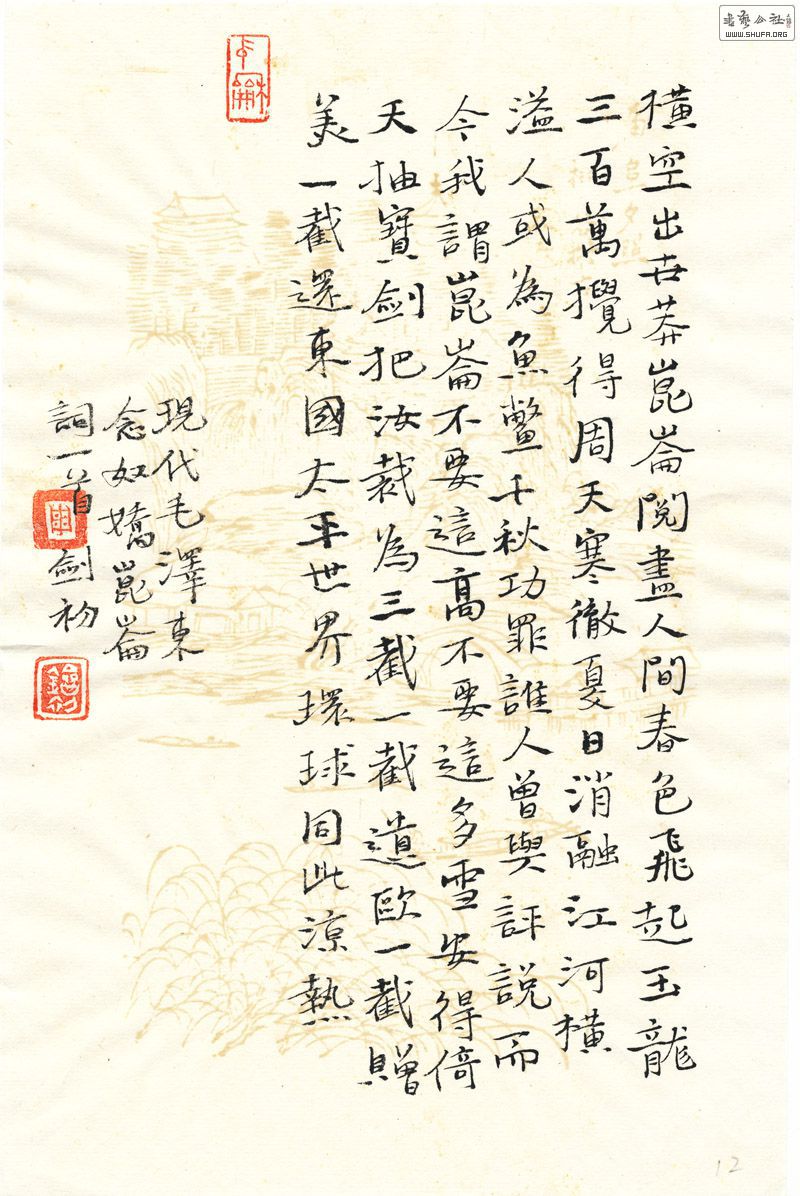 橫空出世莽崑崙閱盡人間春色飛起玉龍
三百萬攪得周天寒徹夏日消融江河橫
溢人或為魚鱉千秋功罪誰人曾與評說而
今我謂崑崙不要這高不要這多雪安得倚
天抽寶劍把汝裁為三截一截遺歐一截贈
美一截還東國太平世界環球同此涼熱
現代毛澤東
念奴嬌崑崙
詞一首 劍初
書藝公社
WWW.SHUFA.ORG
12